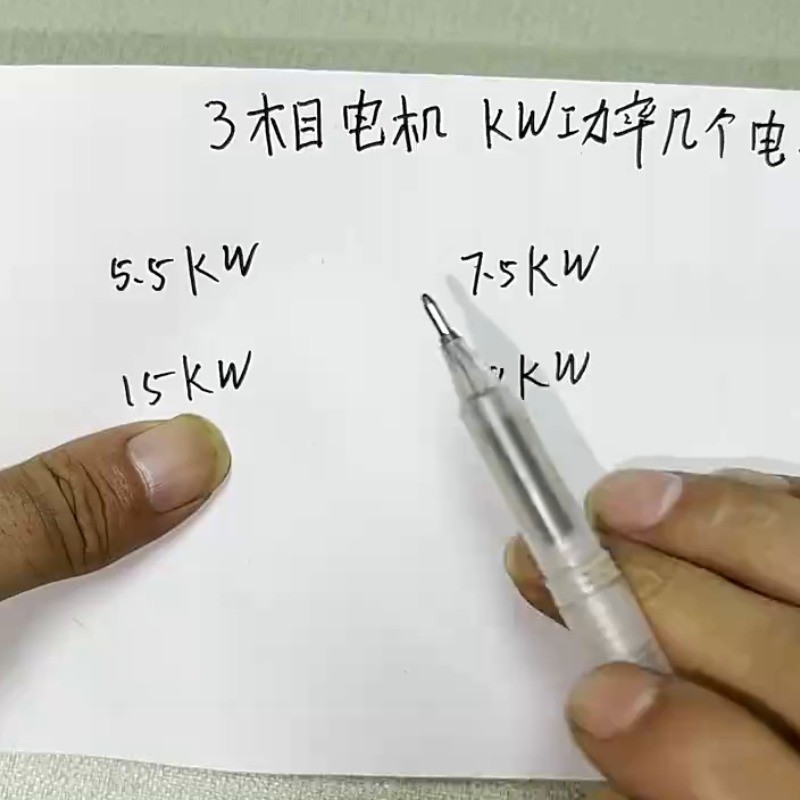 3相电机 KW功率几个电
5.5KW 7.5KW
15KW KW